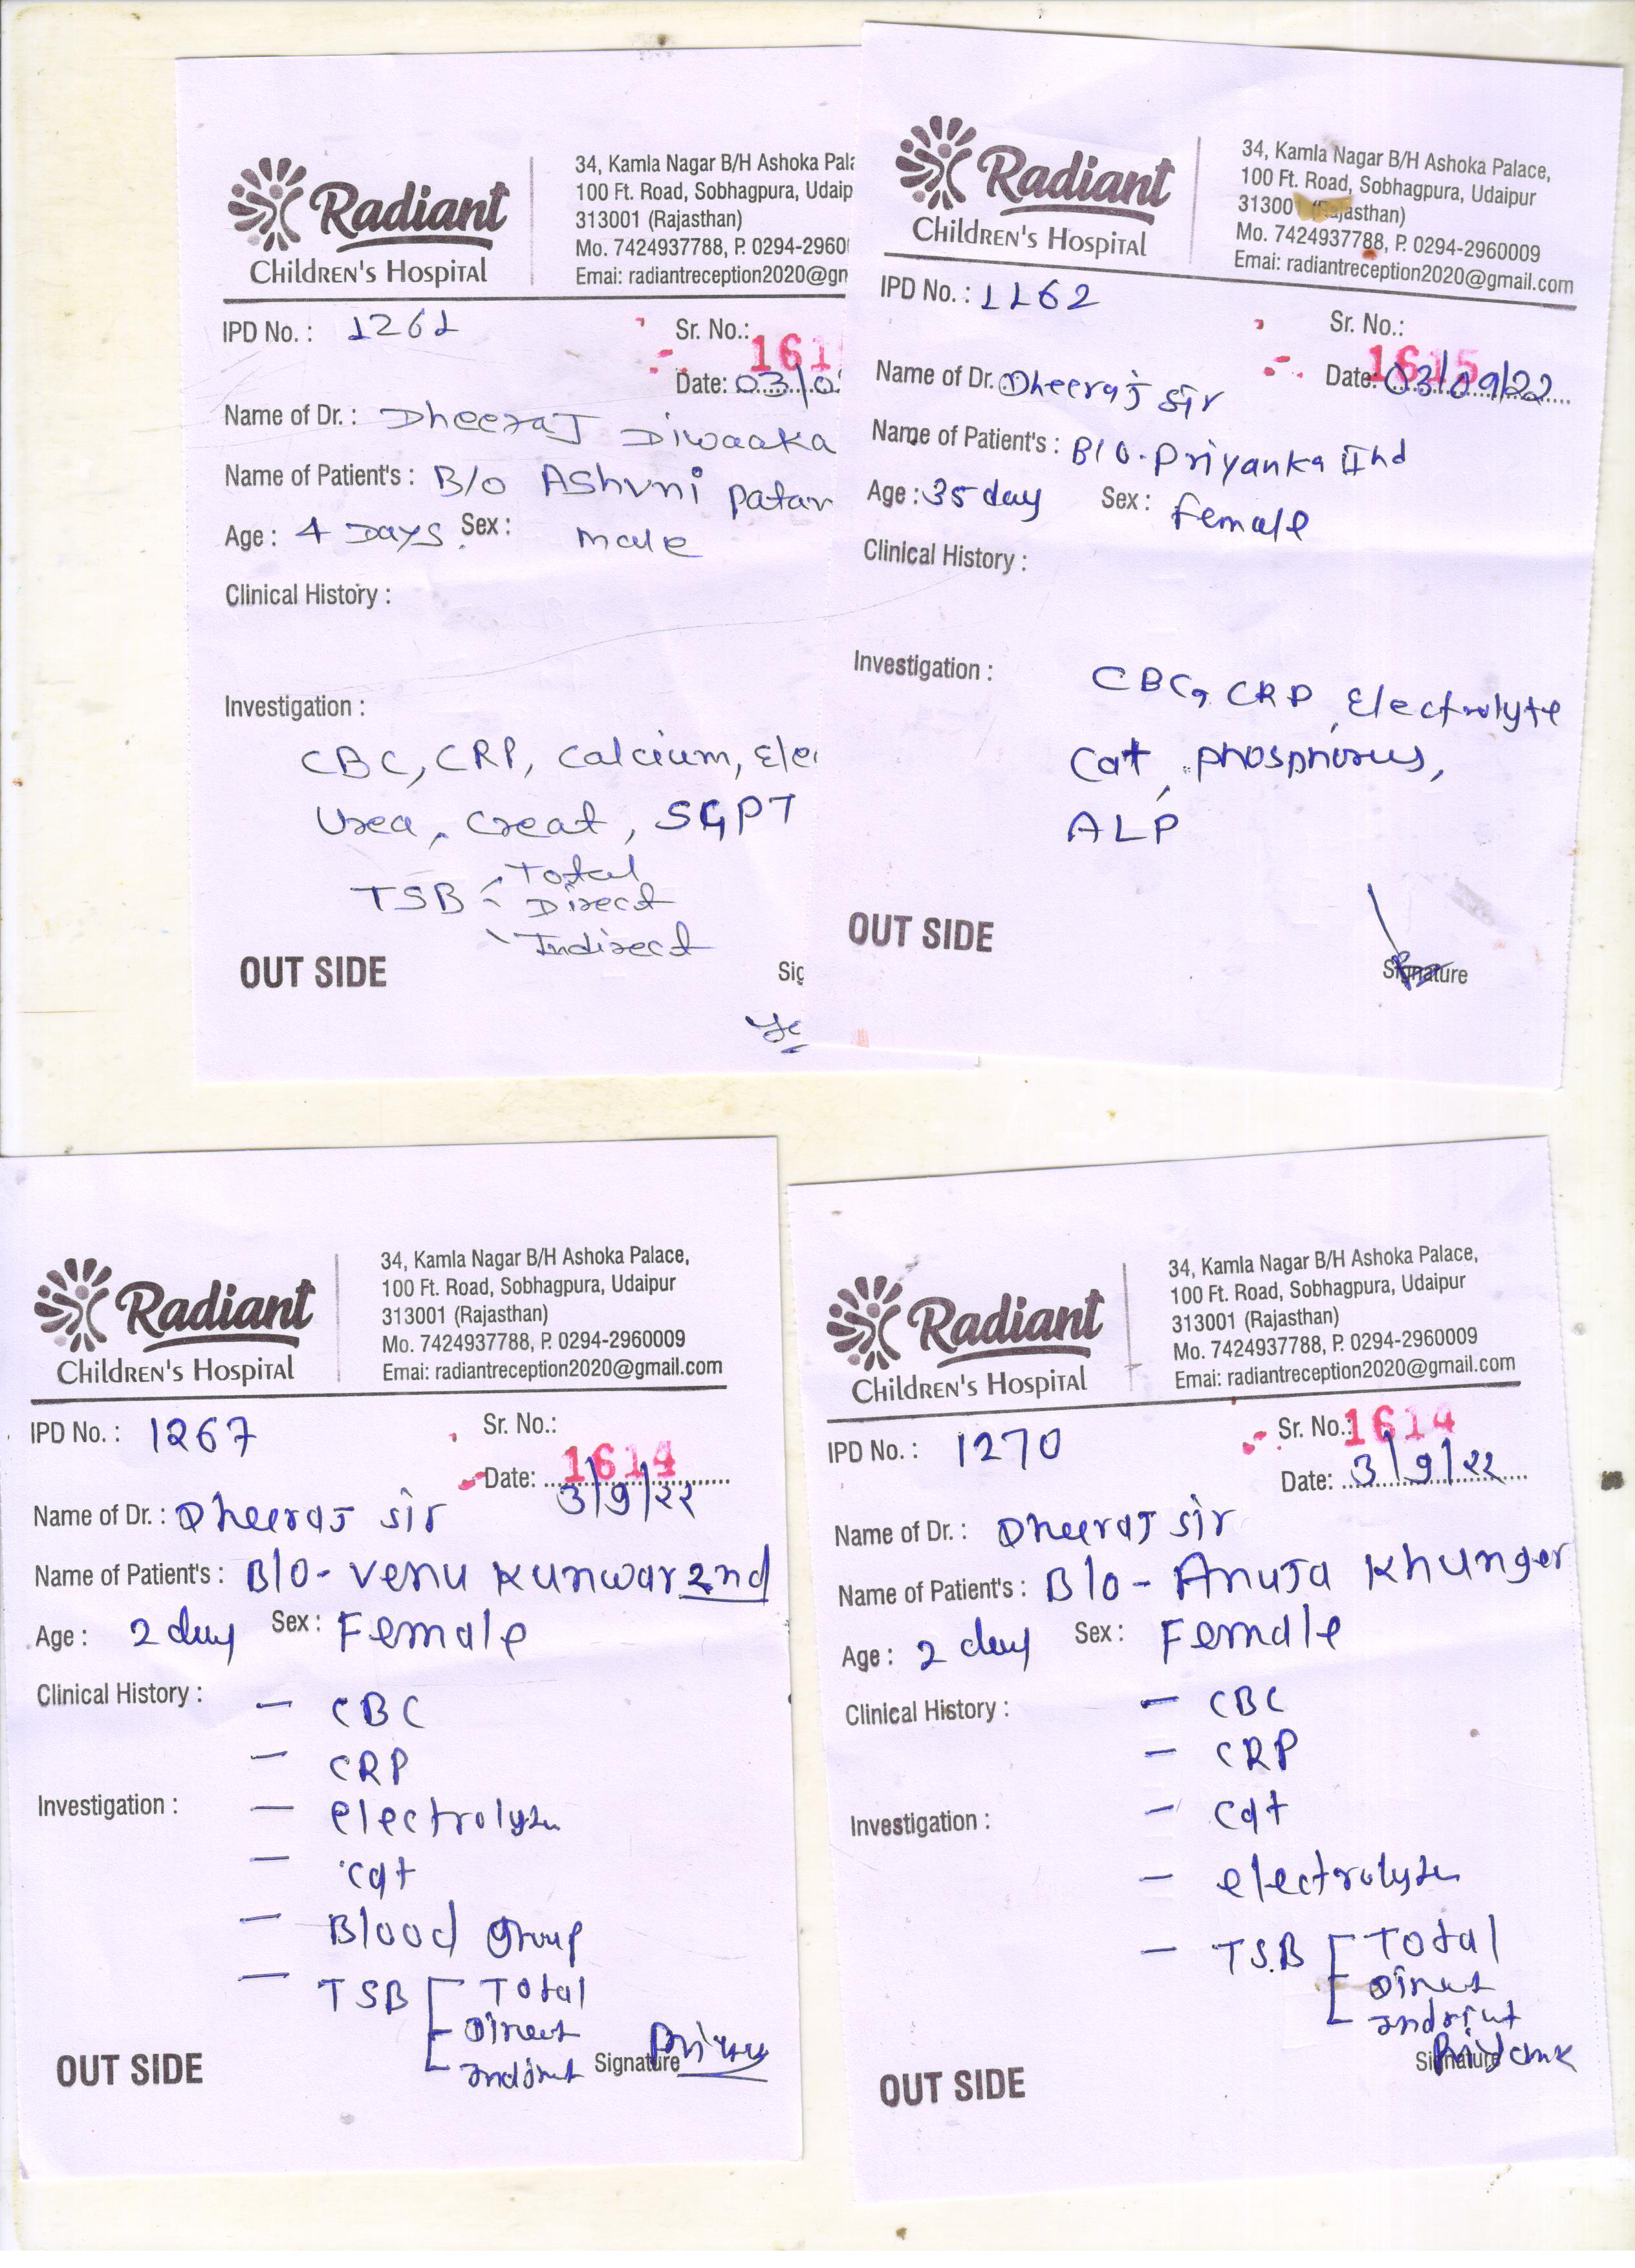 Radiant
Children's Hospital
34, Kamla Nagar B/H Ashoka Pala
100 Ft. Road, Sobhagpura, Udaip
313001 (Rajasthan)
Mo. 7424937788, P. 0294-2960
Emai: radiantreception2020@gm
IPD No. : 1261
Sr. No.: 161
Date: 03/0
Name of Dr. : Dheeraj Diwaaka
Name of Patient's : B/o Ashvni patar
Age : 4 Days Sex : male
Clinical History :
Investigation :
CBC, CRP, Calcium, Ele
Urea, Creat, SGPT
TSB Total
Direct
Indirect
OUT SIDE
Sig
Radiant
Children's Hospital
34, Kamla Nagar B/H Ashoka Palace,
100 Ft. Road, Sobhagpura, Udaipur
31300 (Rajasthan)
Mo. 7424937788, P. 0294-2960009
Emai: radiantreception2020@gmail.com
IPD No. : 1162
Sr. No.: 1615
Date: 03/09/22
Name of Dr. Dheeraj Sir
Name of Patient's : B/O - Priyanka IInd
Age : 35 day Sex : Female
Clinical History :
Investigation :
CBC, CRP, Electrolyte
Cat, phosphorus,
ALP
OUT SIDE
Signature
Radiant
Children's Hospital
34, Kamla Nagar B/H Ashoka Palace,
100 Ft. Road, Sobhagpura, Udaipur
313001 (Rajasthan)
Mo. 7424937788, P. 0294-2960009
Emai: radiantreception2020@gmail.com
IPD No. : 1267
Sr. No.: 1614
Date: 3/9/22
Name of Dr. : Dheeraj sir
Name of Patient's : B/O - Venu Kunwar 2nd
Age : 2 day Sex : Female
Clinical History :
— CBC
— CRP
Investigation :
— electrolyte
— cat
— Blood group
— TSB Total
Direct
indirect
OUT SIDE
Signature
Radiant
Children's Hospital
34, Kamla Nagar B/H Ashoka Palace,
100 Ft. Road, Sobhagpura, Udaipur
313001 (Rajasthan)
Mo. 7424937788, P. 0294-2960009
Emai: radiantreception2020@gmail.com
IPD No. : 1270
Sr. No.: 1614
Date: 3/9/22
Name of Dr. : Dheeraj sir
Name of Patient's : B/o - Anuja Khunger
Age : 2 day Sex : Female
Clinical History :
— CBC
— CRP
Investigation :
— cat
— electrolyte
— TSB Total
Direct
indirect
OUT SIDE
Signature